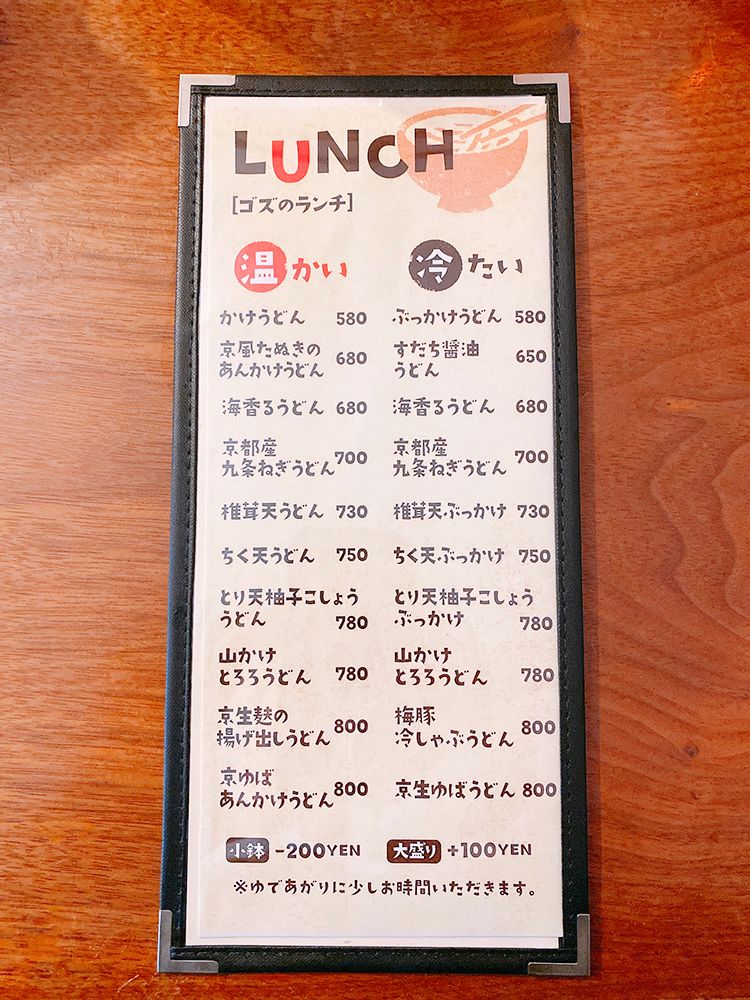 LUNCH
[ゴズのランチ]
温かい
かけうどん 580
京風たぬきの
あんかけうどん 680
海香るうどん 680
京都産
九条ねぎうどん 700
椎茸天うどん 730
ちく天うどん 750
とり天柚子こしょう
うどん 780
山かけ
とろろうどん 780
京生麩の
揚げ出しうどん 800
京ゆば
あんかけうどん 800
冷たい
ぶっかけうどん 580
すだち醤油
うどん 650
海香るうどん 680
京都産
九条ねぎうどん 700
椎茸天ぶっかけ 730
ちく天ぶっかけ 750
とり天柚子こしょう
ぶっかけ 780
山かけ
とろろうどん 780
梅豚
冷しゃぶうどん 800
京生ゆばうどん 800
小鉢 -200YEN 大盛り +100YEN
※ゆであがりに少しお時間いただきます。